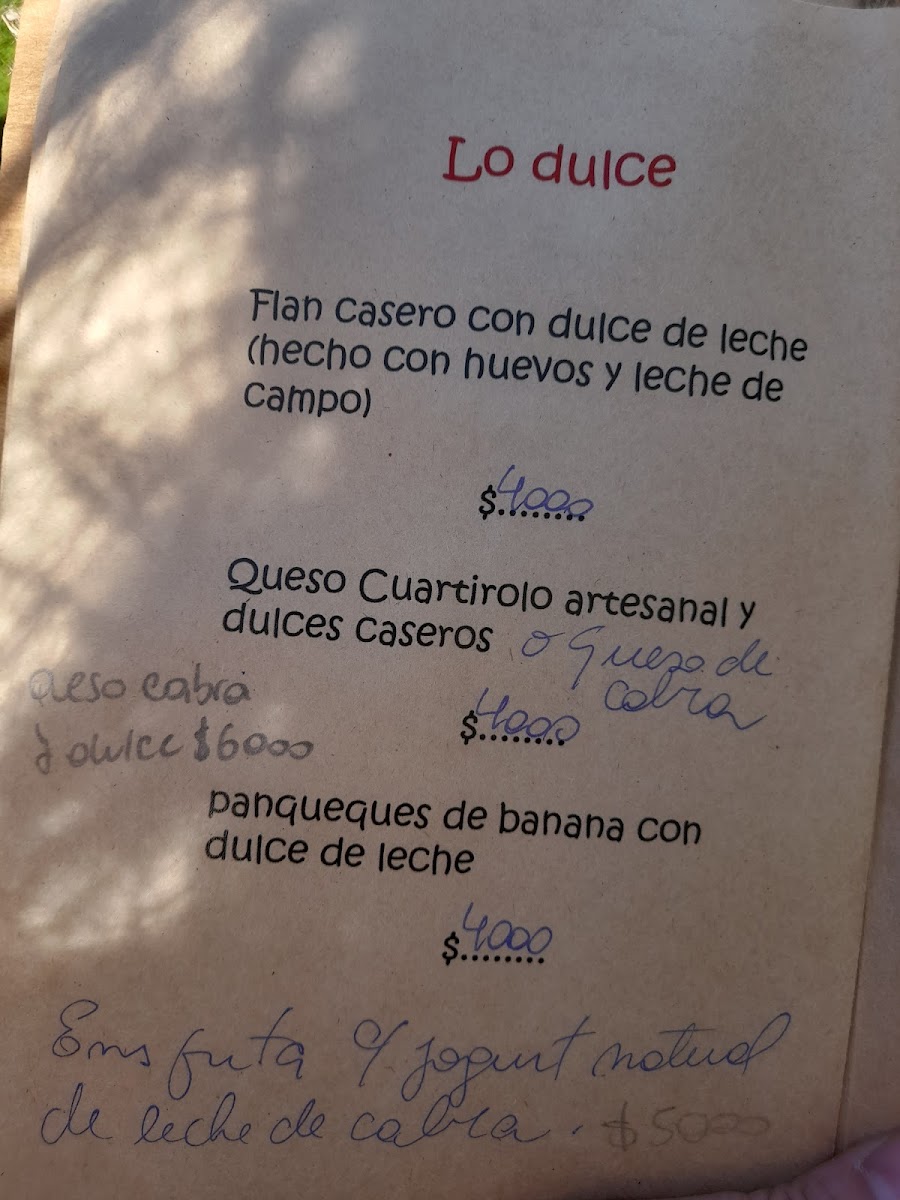 Lo dulce
Flan casero con dulce de leche
(hecho con huevos y leche de
campo)
$4000
Queso Cuartirolo artesanal y
dulces caseros o Queso de
cabra
$4000
queso cabra
y dulce $6000
panqueques de banana con
dulce de leche
$4000
Ens fruta c/ jogurt natural
de leche de cabra. $5000